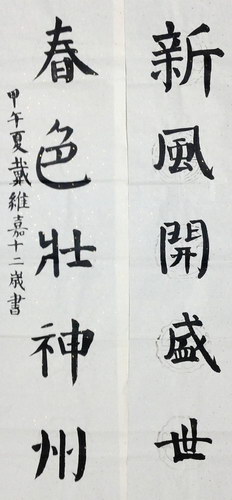 新風開盛世
春色壯神州
甲午夏戴維嘉十二歲書